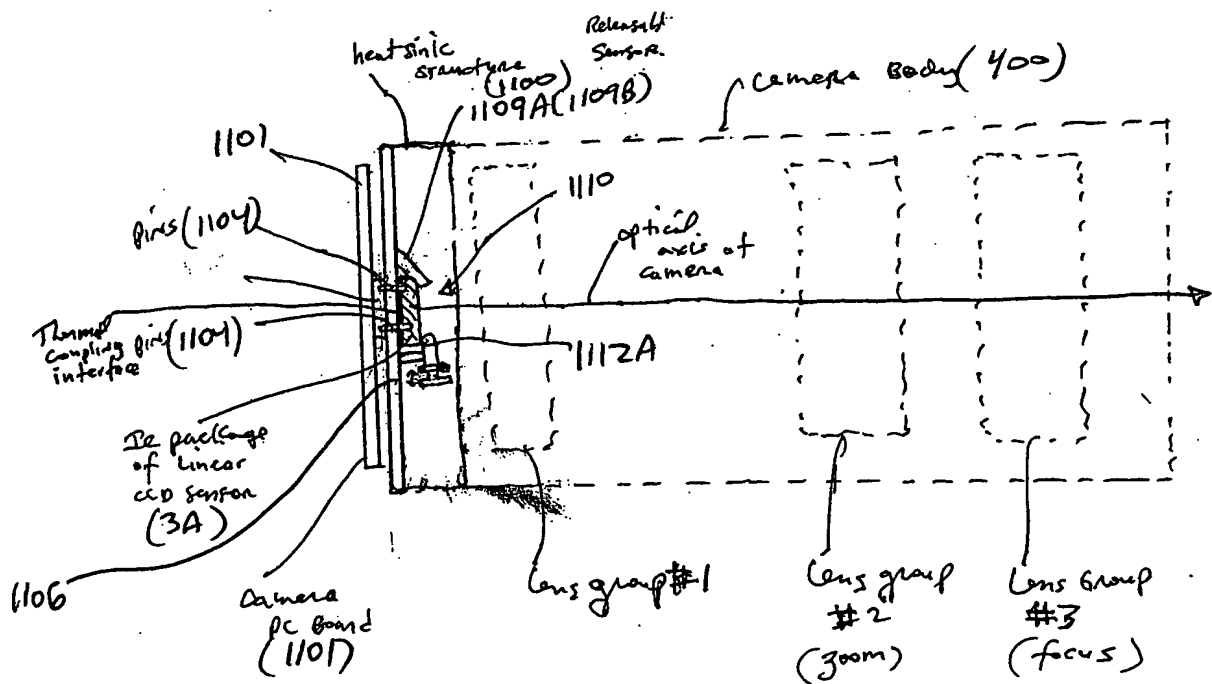 heatsink
structure
(1100)
Releasable
Sensor
1109A(1109B)
camera Body(400)
1101
1110
pins(1104)
optical
axis of
camera
Thermal
coupling
interface
pins(1104)
1112A
IC package
of Linear
CCD sensor
(3A)
1106
camera
PC Board
(1101)
Lens group #1
Lens group
#2
(zoom)
Lens Group
#3
(focus)